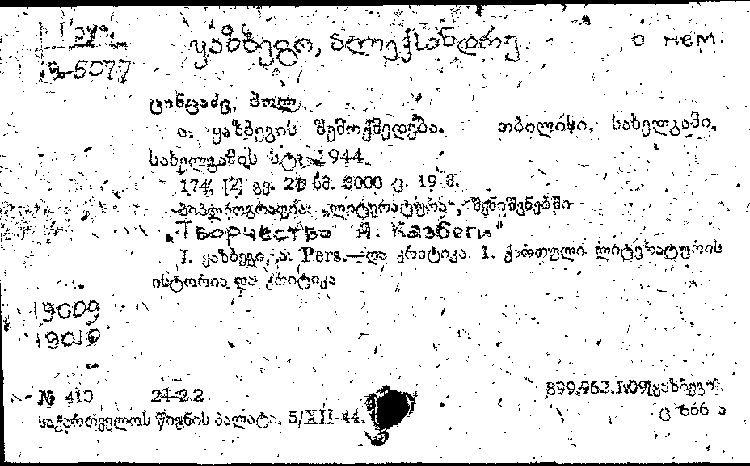 ყაზბეგი, ალექსანდრე о нем.
ცინცაძე, პოლ.
ა. ყაზბეგის შემოქმედება. თბილისი, სახელგამი,
სახელგამის სტ., 1944.
174, [2] გვ. 21 სმ. 3000 ც. 19 მ.
ბიბლიოგრაფია: „ლიტერატურა", შენიშვნებში
„Творчество А. Казбеги"
1. ყაზბეგი, ა. Pers.—და კრიტიკა. 1. ქართული ლიტერატურის
ისტორია და კრიტიკა
19009
19010
№ 410 24-2.2 899.963.1.09[ყაზბეგი].
საქართველოს წიგნის პალატა. 5/XII-44. ც 666 ა